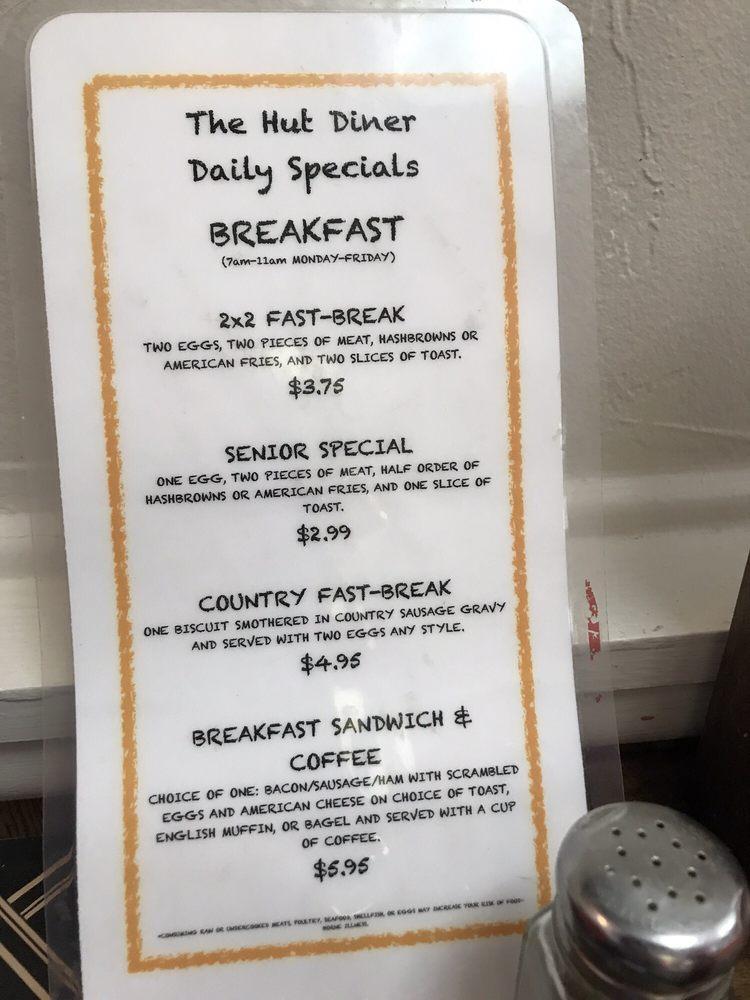 The Hut Diner
Daily Specials
BREAKFAST
(7am-11am MONDAY-FRIDAY)
2x2 FAST-BREAK
TWO EGGS, TWO PIECES OF MEAT, HASHBROWNS OR
AMERICAN FRIES, AND TWO SLICES OF TOAST.
$3.75
SENIOR SPECIAL
ONE EGG, TWO PIECES OF MEAT, HALF ORDER OF
HASHBROWNS OR AMERICAN FRIES, AND ONE SLICE OF
TOAST.
$2.99
COUNTRY FAST-BREAK
ONE BISCUIT SMOTHERED IN COUNTRY SAUSAGE GRAVY
AND SERVED WITH TWO EGGS ANY STYLE.
$4.95
BREAKFAST SANDWICH &
COFFEE
CHOICE OF ONE: BACON/SAUSAGE/HAM WITH SCRAMBLED
EGGS AND AMERICAN CHEESE ON CHOICE OF TOAST,
ENGLISH MUFFIN, OR BAGEL AND SERVED WITH A CUP
OF COFFEE.
$5.95
*CONSUMING RAW OR UNDERCOOKED MEATS, POULTRY, SEAFOOD, SHELLFISH, OR EGGS MAY INCREASE YOUR RISK OF FOOD-
BORNE ILLNESS.